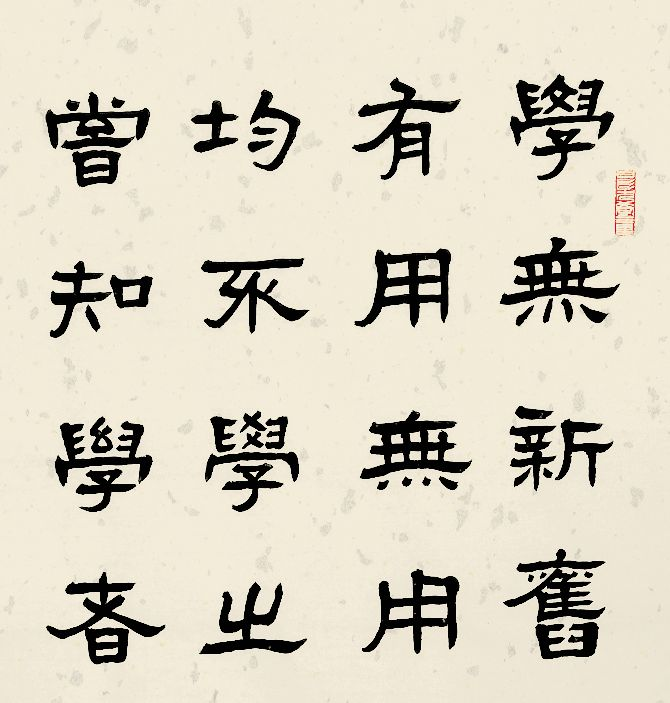 學無新舊
有用無用
均不學之
嘗知學者